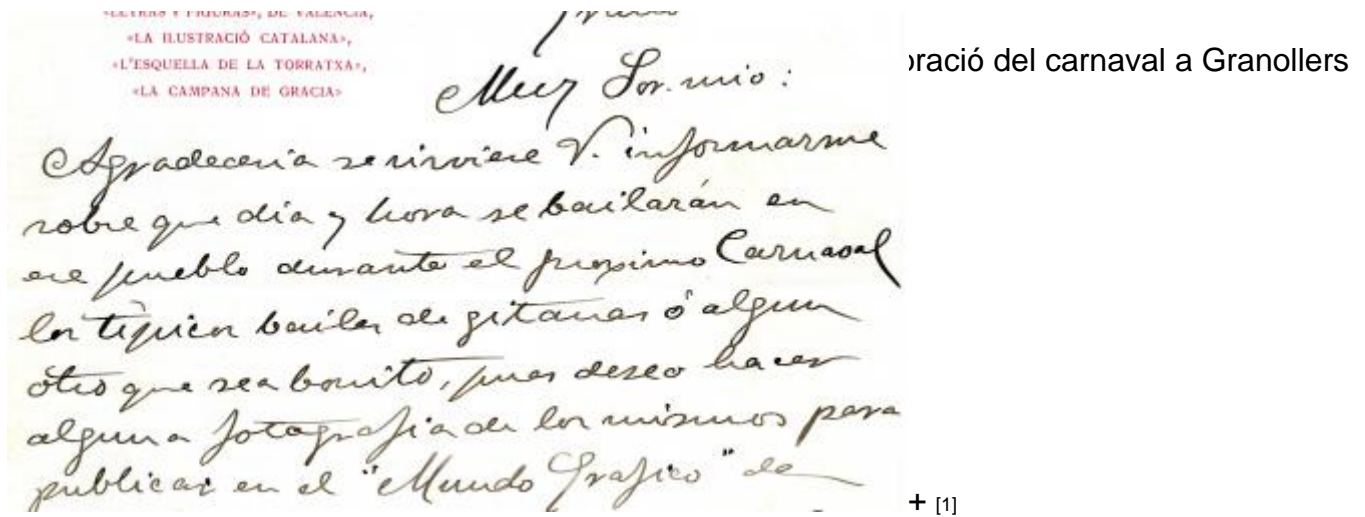 «LETRAS Y FIGURAS», DE VALENCIA,
«LA ILUSTRACIÓ CATALANA»,
«L'ESQUELLA DE LA TORRATXA»,
«LA CAMPANA DE GRACIA»
oració del carnaval a Granollers
Muy Sor. mio:
Agradeceria se sirviese V. informarme
sobre que día y hora se bailarán en
ese pueblo durante el proximo Carnaval
los tipicos bailes de gitanas ó algun
otro que sea bonito, pues deseo hacer
alguna fotografia de los mismos para
publicar en el "Mundo Grafico" de
+ [1]